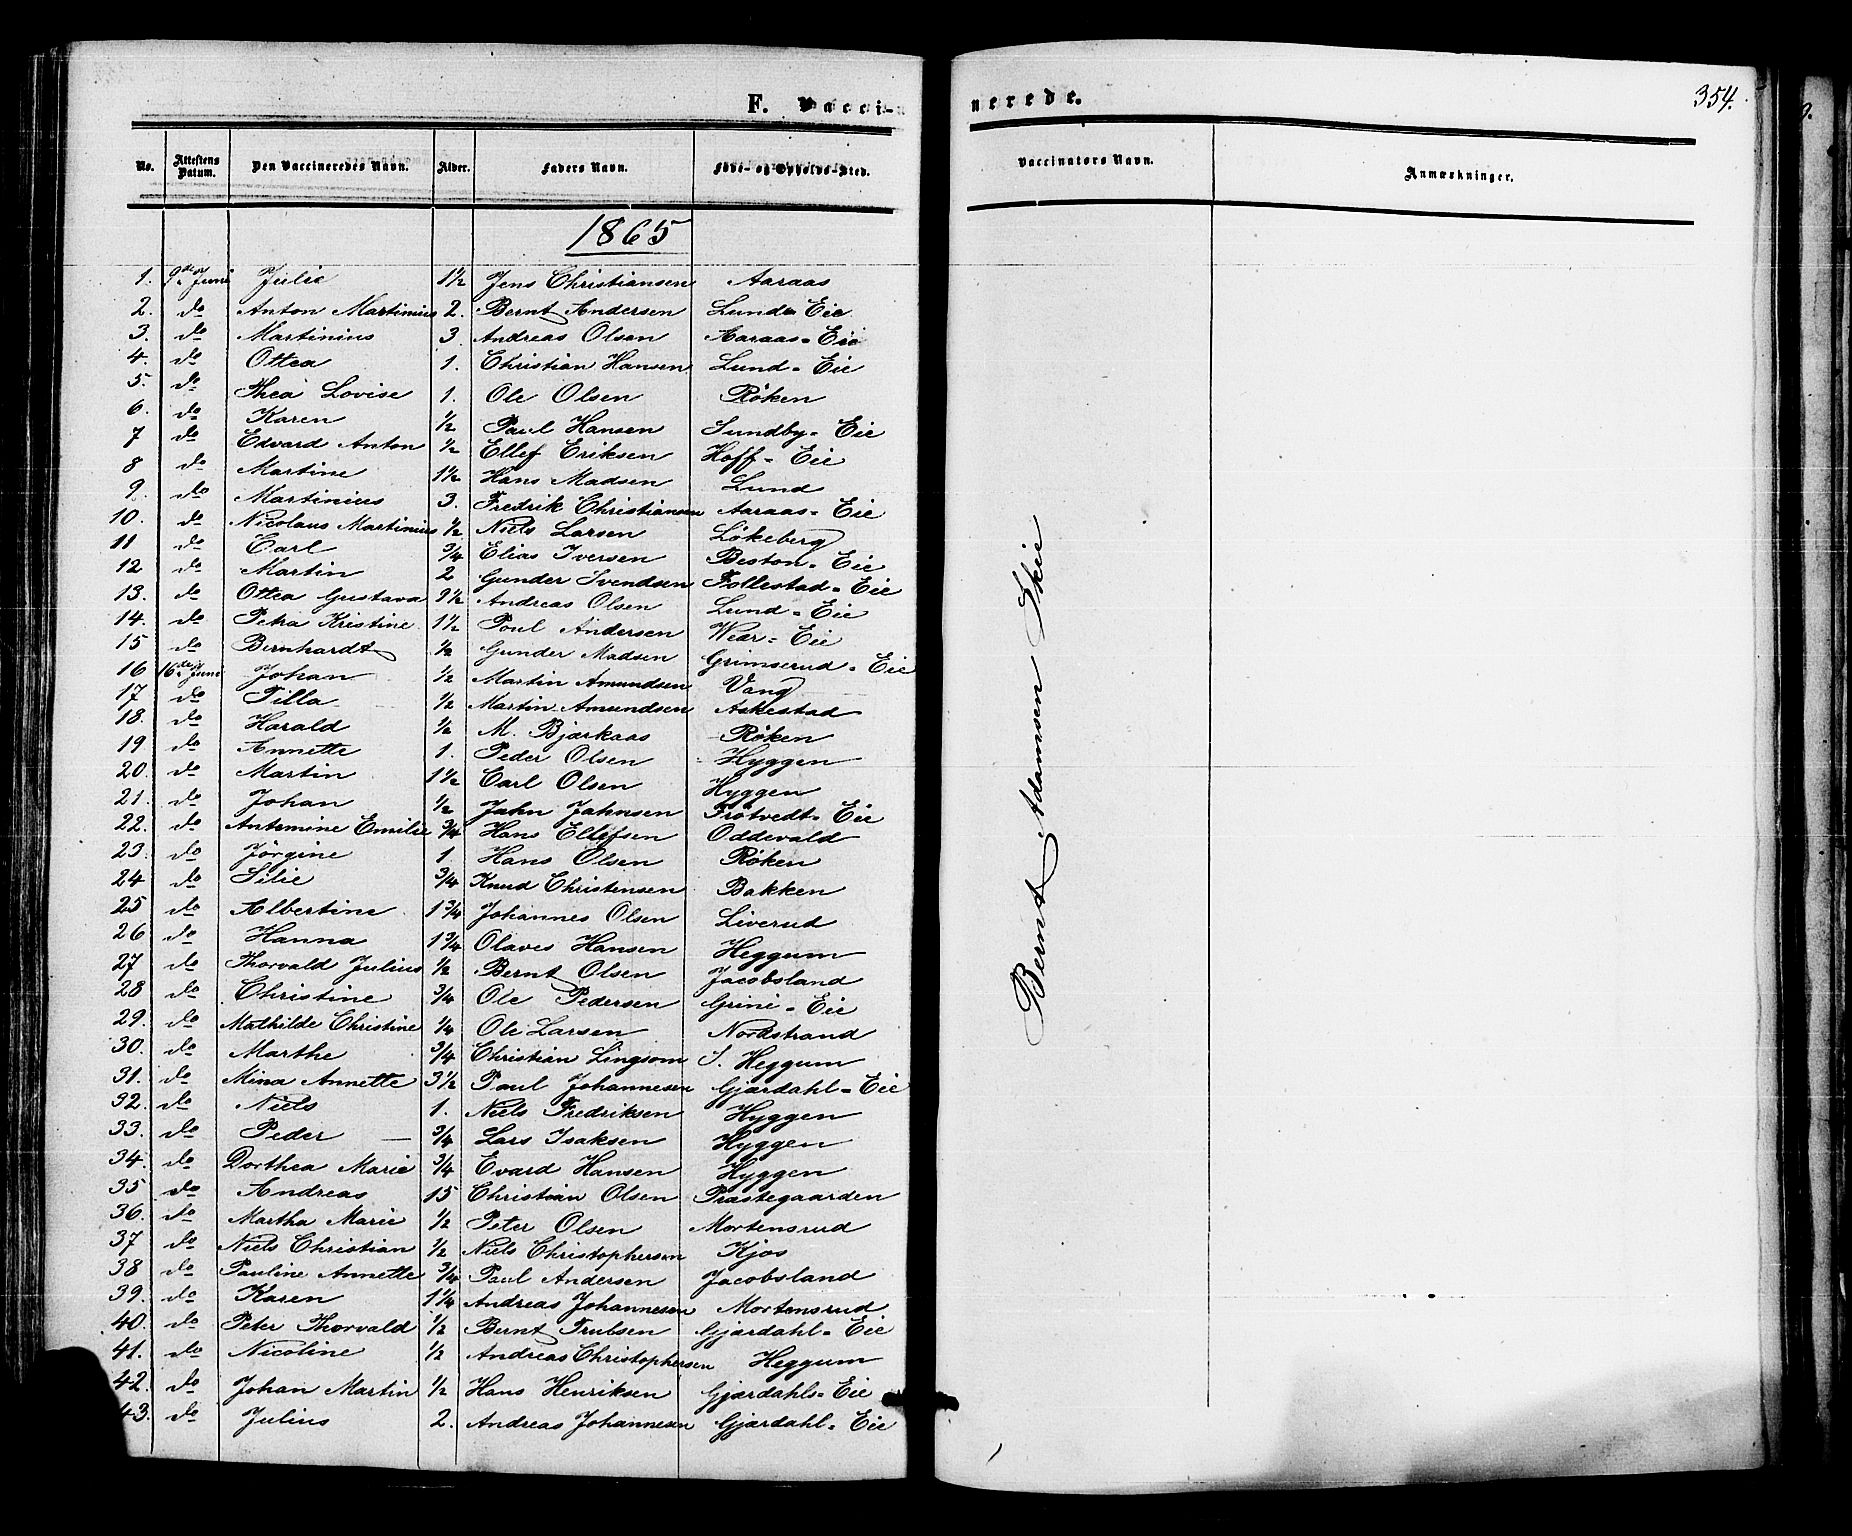 F. Vacci-
nerede.
354.
No. Attestens Datum. Den Vaccineredes Navn. Alder. Faders Navn. Føde- og Opholds-Sted. Vaccinators Navn. Anmærkninger.
1865
1. 9de Juni Julie 1½ Jens Christiansen Aaraas
2. do Anton Martinius 2. Bernt Andersen Lund Eie.
3. do Martinius 3. Andreas Olsen Aaraas-Eie
4. do Ottea 1. Christian Hansen Lund-Eie
5. do Thea Lovise 1. Ole Olsen Røken
6. do Karen ½ Paul Hansen Sundby-Eie
7 do Edvard Anton ½ Ellef Eriksen Hoff-Eie
8 do Martine 1½ Hans Madsen Lund
9. do Martinius 3. Fredrik Christiansen Aaraas-Eie
10. do Nicolaus Martinius ½ Niels Larsen Løkeberg
11 do Carl ¾ Elias Iversen Beston-Eie
12 do Martin 2 Gunder Svendsen Follestad-Eie
13. do Ottea Gustava 9½ Andreas Olsen Lund-Eie
14. do Petra Kristine 1½ Poul Andersen Wear-Eie
15 do Bernhardt ½ Gunder Madsen Grimserud-Eie
16 16de Juni Johan ½ Martin Amundsen Vang
17 do Tilla ½ Martin Amundsen Askestad
18. do Harald ½ M. Bjærkaas Røken
19 do Annette 1. Peder Olsen Hyggen
20. do Martin 1½ Carl Olsen Hyggen
21. do Johan ½ Jahn Jahnsen Frøtvedt-Eie
22. do Antemine Emilie ¾ Hans Ellefsen Oddevald
23. do Jørgine 1. Hans Olsen Røken
24 do Silie ¾ Knud Christensen Bakken
25 do Albertine 1¾ Johannes Olsen Liverud
26 do Hanna 1¾ Olaves Hansen Heggum
27 do Thorvald Julius ½ Bernt Olsen Jacobsland
28 do Christine ¾ Ole Pedersen Grini-Eie
29. do Mathilde Christine ¼ Ole Larsen Nordstrand
30. do Marthe ¾ Christian Lingsom S. Heggum
31. do Mina Annette 3½ Paul Johannesen Gjærdahl-Eie
32. do Niels 1. Niels Fredriksen Hyggen
33. do Peder ¾ Lars Isaksen Hyggen
34. do Dorthea Marie ¾ Evard Hansen Hyggen
35 do Andreas 15 Christian Olsen Præstegaarden
36. do Martha Marie ½ Peter Olsen Mortensrud
37 do Niels Christian ½ Niels Christophersen Kjos
38 do Pauline Annette ¾ Paul Andersen Jacobsland
39. do Karen 1¼ Andreas Johannesen Mortensrud
40. do Peter Thorvald ½ Bernt Trulsen Gjærdahl-Eie
41. do Nicoline ½ Andreas Christophersen Heggum
42. do Johan Martin ½ Hans Henriksen Gjærdahls-Eie
43. do Julius 2. Andreas Johannesen Gjærdahl-Eie
Bernt Adamsen Skie